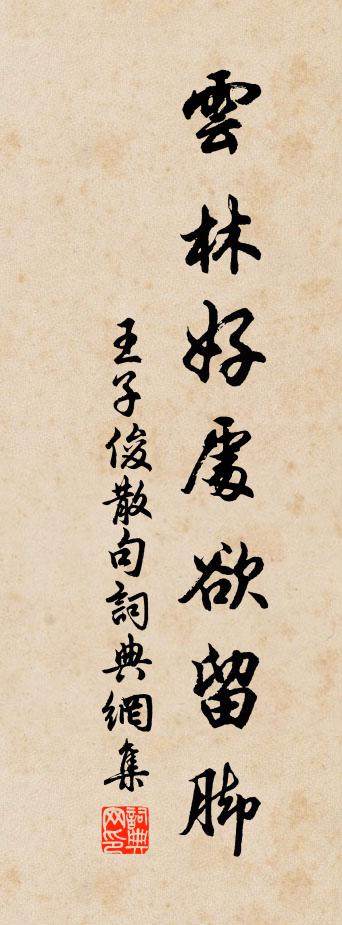 雲林好處欲留脚
王子俊散句詞典網集
詞典网印